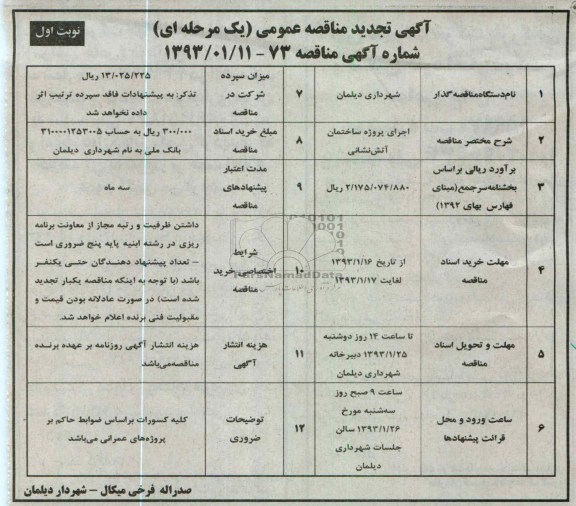 آگهی تجدید مناقصه عمومی (یک مرحله ای)
نوبت اول
شماره آگهی مناقصه ۷۳ - ۱۳۹۳/۰۱/۱۱
۱
نام‌دستگاه‌مناقصه‌گذار
شهرداری دیلمان
۷
میزان سپرده
شرکت در
مناقصه
۱۳/۰۲۵/۲۲۵ ریال
تذکر: به پیشنهادات فاقد سپرده ترتیب اثر
داده نخواهد شد
۲
شرح مختصر مناقصه
اجرای پروژه ساختمان
آتش‌نشانی
۸
مبلغ خرید اسناد
مناقصه
۳۰۰/۰۰۰ ریال به حساب ۳۱۰۰۰۰۱۲۵۳۰۰۵
بانک ملی به نام شهرداری دیلمان
۳
برآورد ریالی براساس
بخشنامه‌سرجمع(مبنای
فهارس بهای ۱۳۹۲)
۲/۱۷۵/۰۷۴/۸۸۰ ریال
۹
مدت اعتبار
پیشنهادهای
مناقصه
سه ماه
۴
مهلت خرید اسناد
مناقصه
از تاریخ ۱۳۹۳/۱/۱۶
لغایت ۱۳۹۳/۱/۱۷
۱۰
شرایط
اختصاصی خرید
مناقصه
داشتن ظرفیت و رتبه مجاز از معاونت برنامه
ریزی در رشته ابنیه پایه پنج ضروری است
– تعداد پیشنهاد دهنـدگان حتـی یکنفـر
باشد (با توجه به اینکه مناقصه یکبار تجدید
شده است) در صورت عادلانه بودن قیمت و
مقبولیت فنی برنده اعلام خواهد شد.
۵
مهلت و تحویل اسناد
مناقصه
تا ساعت ۱۴ روز دوشنبه
۱۳۹۳/۱/۲۵ دبیرخانه
شهرداری دیلمان
۱۱
هزینه انتشار
آگهی
هزینه انتشار آگهی روزنامه بر عهده برنـده
مناقصه‌می‌باشد
۶
ساعت ورود و محل
قرائت پیشنهادها
ساعت ۹ صبح روز
سه‌شنبه مورخ
۱۳۹۳/۱/۲۶ سالن
جلسات شهرداری
دیلمان
۱۲
توضیحات
ضروری
کلیه کسورات براساس ضوابط حاکم بر
پروژه‌های عمرانی می‌باشد
صدراله فرخی میکال – شهردار دیلمان